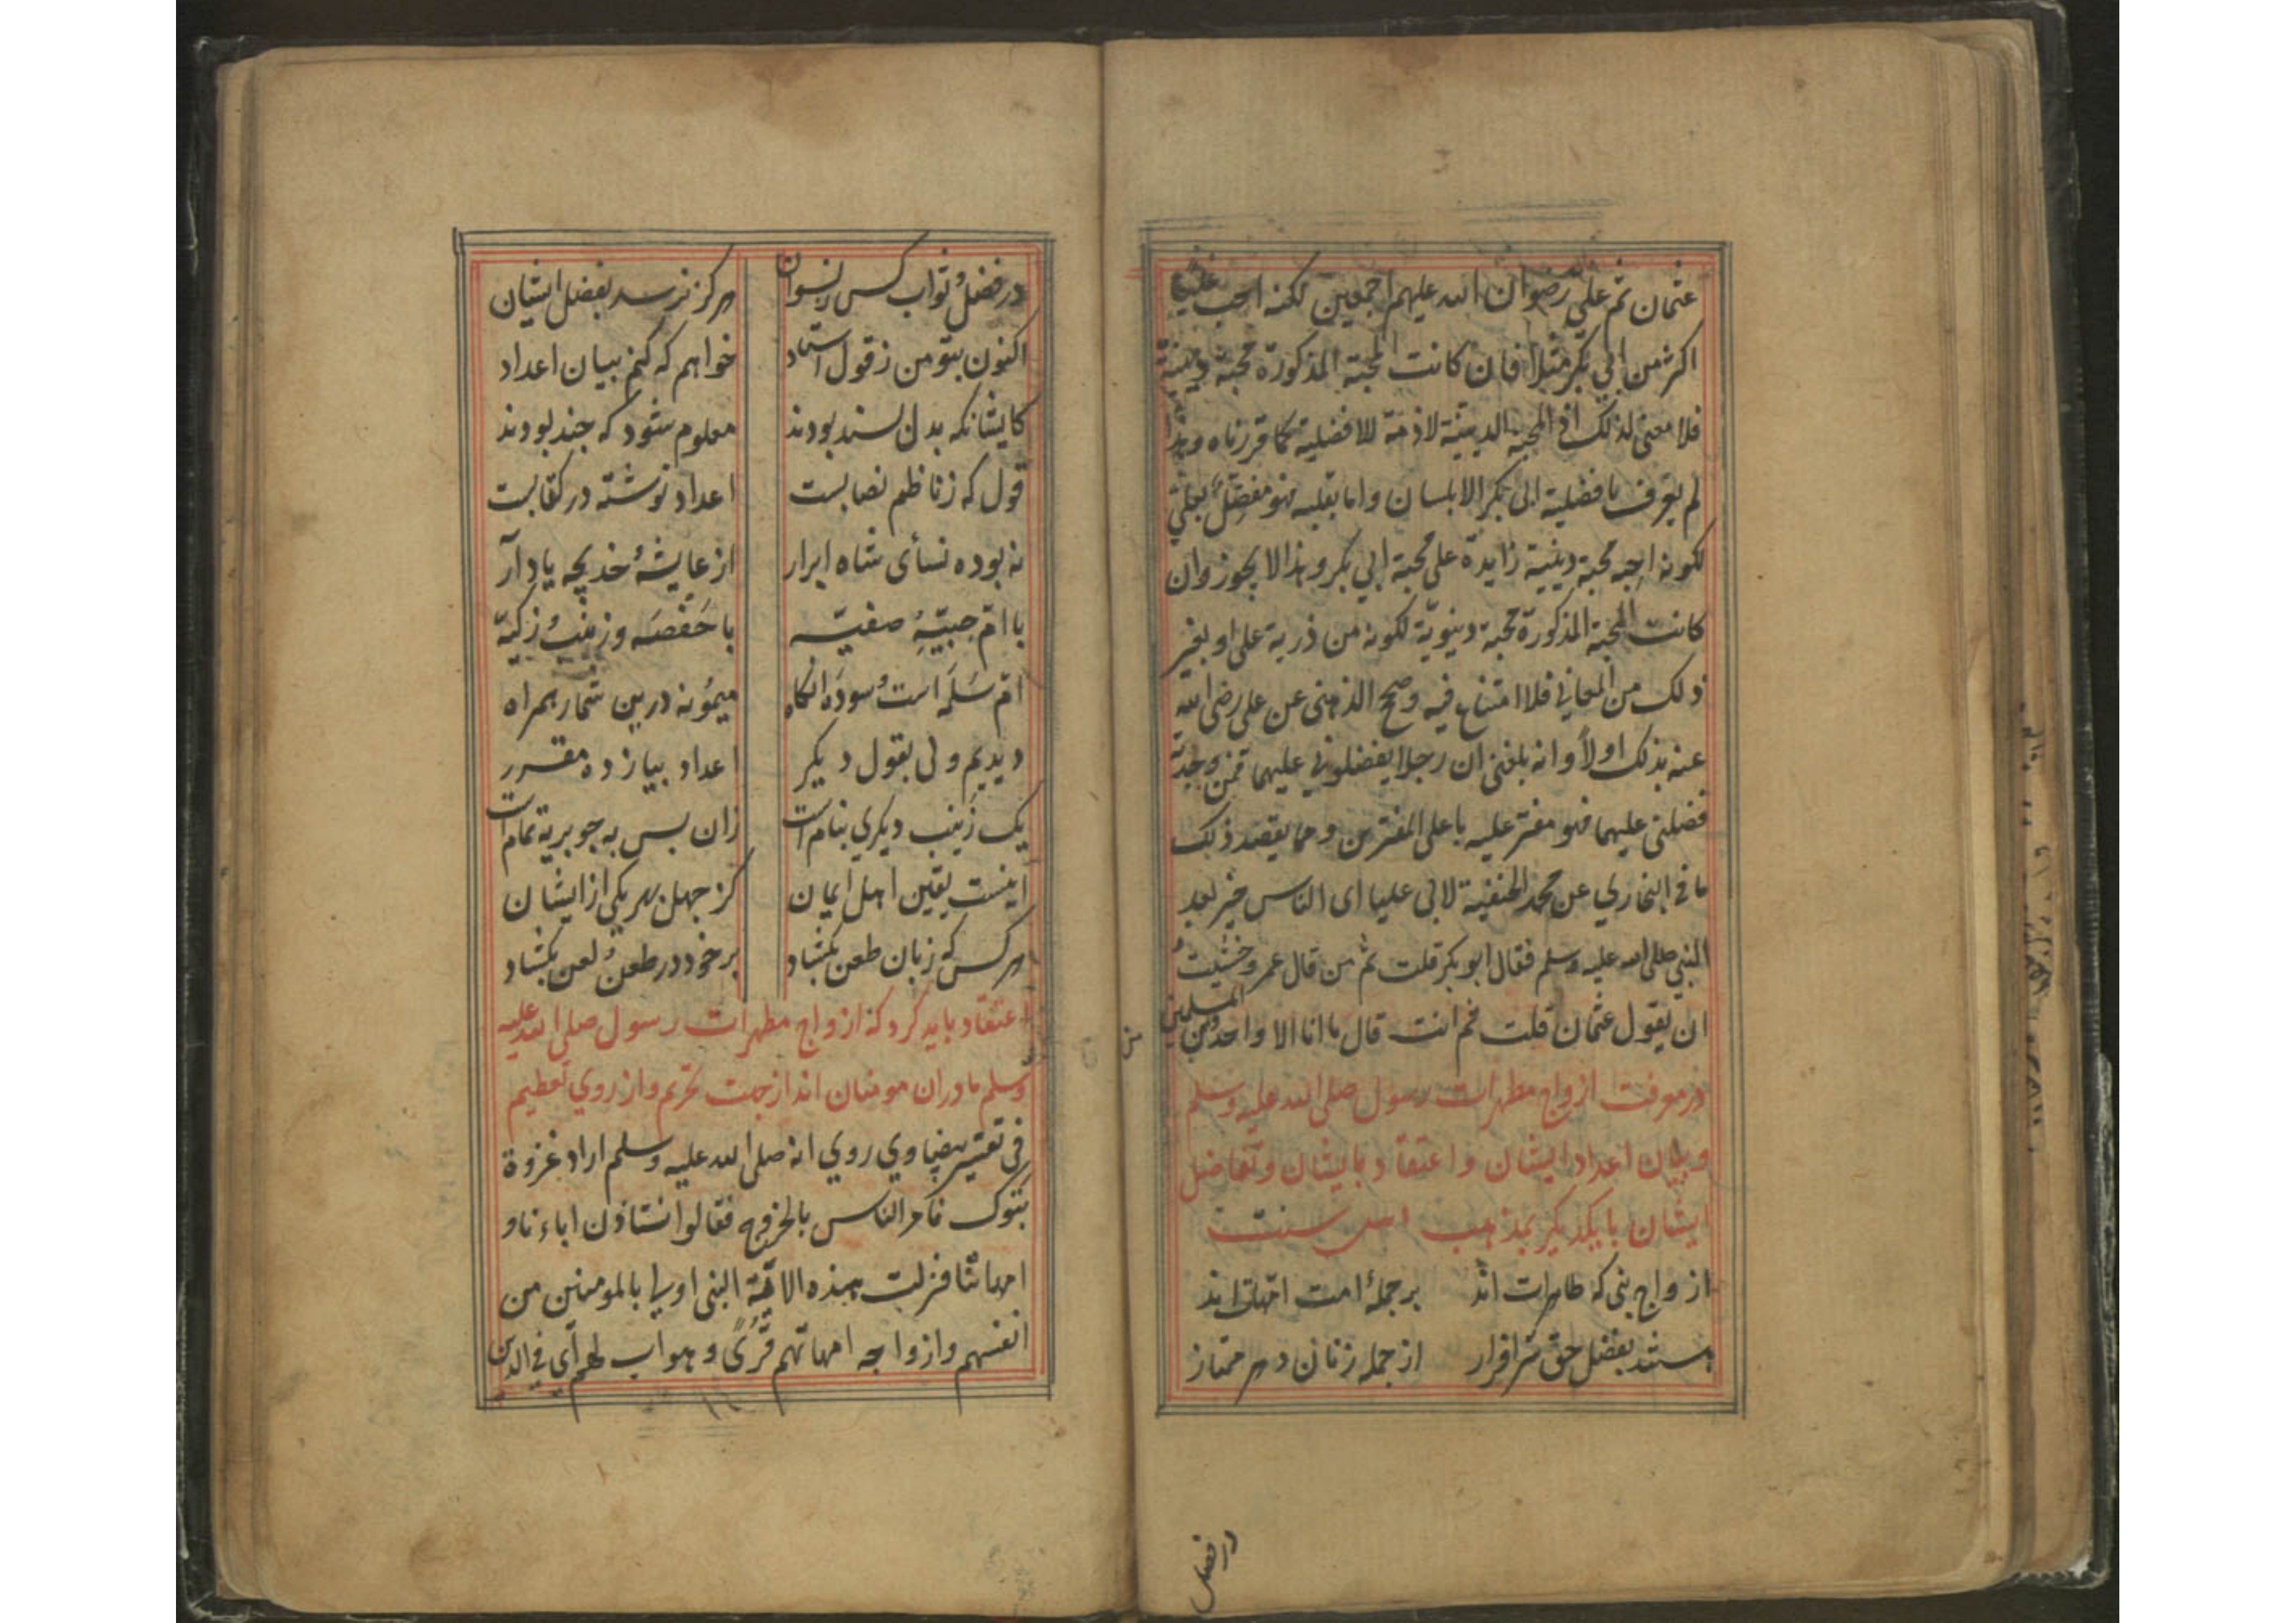 عثمان ثم علي رضوان الله عليهم اجمعين لكنه احب عليا
اكثر من ابي بكر مثلا فان كانت المحبة المذكورة محبة دينية
فلا معنى لذلك اذ المحبة الدينية لازمة للافضلية كما قررناه وهذا
لم يعترف بافضلية ابى بكر الا بلسان واما بقلبه فهو مفضل لعلي
لكونه احبه محبة دينية زايدة على محبة ابي بكر وهذا لا يجوز وان
كانت المحبة المذكورة محبة دنيوية لكونه من ذرية على او لغير
ذلك من المعاني فلا امتناع فيه وصح الذهبى عن على رضى الله
عنه بذلك اولا وانه بلغنى ان رجلا يفضلوني عليهما فمن وجدته
فضلنى عليهما فهو مفتر عليه ما على المفترين ومما يعضد ذلك
ما في البخاري عن محمد الحنفية لابى عليا اى الناس خير بعد
النبي صلى الله عليه وسلم فقال ابو بكر قلت ثم من قال عمر وخشيت
ان يقول عثمان قلت ثم انت قال ما انا الا واحد من المسلمين
در معرفت ازواج مطهرات رسول صلى الله عليه وسلم
و بيان اعداد ايشان و اعتقاد بايشان و تفاضل
ايشان با يكديكر بمذهب اهل سنت
ازواج نبى كه طاهرات اند برجملۀ امت امهات اند
هستند بفضل حق سرافراز از جمله زنان دهر ممتاز
در فضل
در فضل و ثواب كس ز نسوان هركز نرسد بفضل ايشان
اكنون بتو من ز قول استاد خواهم كه كنم بيان اعداد
كايشانكه بدل پسند بودند معلوم شود كه چند بودند
قول كه ز ناظم نصابست اعداد نوشته در كتابست
نه بوده نسأى شاه ابرار از عايشه خديجه ياد آر
با ام حبيبه صفيه با حفصه و زينب زكيه
ام سلمه است و سوده انكاه ميمونه درين شمار همراه
ديديم ولى بقول ديكر اعداد بيازده مقرر
يك زينب ديكري بنامست زان پس به جويرية تمامست
اينست يقين اهل ايمان كز جهل بهر يكى از ايشان
هركس كه زبان طعن بكشاد بر خود در طعن و لعن بكشاد
اعتقاد بايد كرد كه ازواج مطهرات رسول صلى الله عليه
وسلم مادران مومنان اند از جهت تحريم و از روي تعظيم
فى تفسير بيضاوي روي انه صلى الله عليه وسلم اراد غزوة
تبوك فامر الناس بالخروج فقالوا نستاذن اباءنا و
امهاتنا فنزلت بهذه الاية النبى اولى بالمومنين من
انفسهم وازواجه امهاتهم قرئ وهو اب لهم اى في الدين